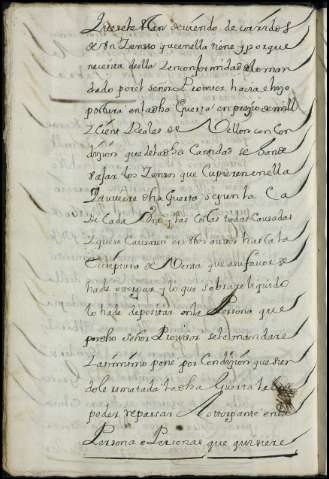 que se le estan deviendo de corridos
de Un Zensso que en ella tiene y porque
necesita della en conformidad de lo man
dado por el señor Provisor haria e hizo
postura en la dha Guerta en prezio de mill
Zient Reales de Vellon con Con
dizion que de la dha Cantidad se han de
vajar los Zensos que tubiere en ella
la dha Guerta segun la
de Cada y las Costas todas Causadas
y que se Causaren en estos autos hasta la
escriptura de Venta que a su favor se
ha de otorgar y lo que sobrare liquido
lo ha de depositar en la Persona que
por dho Señor Provisor se le mandare
Y asimismo pone por Condizion que sien
dole rematada la dha Guerta ha de
poder traspassar el otorgante en la
Persona o Personas que quisiere